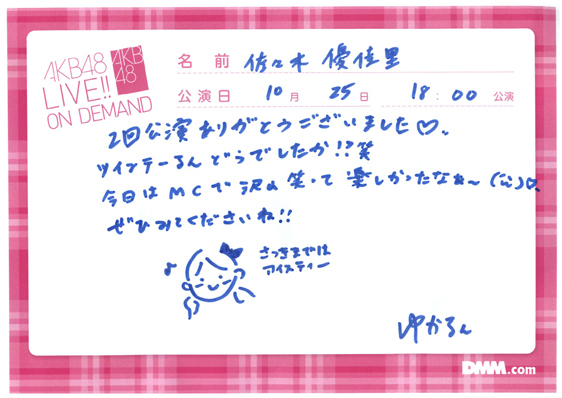 AKB48
LIVE!!
ON DEMAND
AKB
48
名前 佐々木 優佳里
公演日 10月 25日 18:00 公演
2回公演ありがとうございました♡。
ツインテーるんどうでしたか!?笑
今日はMCで沢山笑って楽しかったなぁ〜
ぜひみてくださいね!!
♪
さっきまでは
アイスティー
ゆかるん
DMM.com